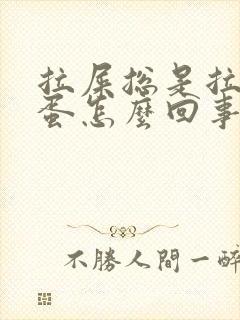 拉屎总是拉
蛋怎麼回事
不勝人間一醉